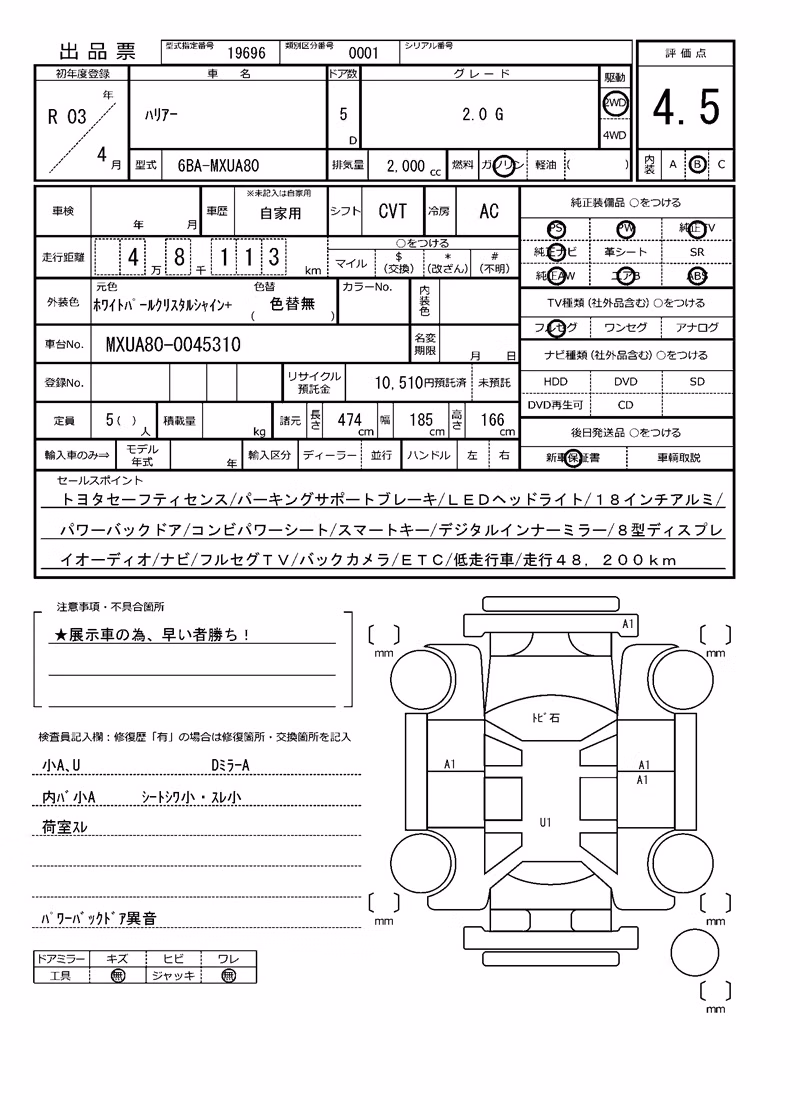 出品票 型式指定番号 19696 類別区分番号 0001 シリアル番号 評価点
初年度登録 車名 ドア数 グレード 駆動
R 03 年 4 月 ハリアー 5 D 2.0 G 2WD 4WD 4.5
型式 6BA-MXUA80 排気量 2,000 cc 燃料 ガソリン 軽油 ( ) 内装 A B C
車検 年 月 車歴 ※未記入は自家用 自家用 シフト CVT 冷房 AC 純正装備品 ○をつける
PS PW 純正TV
走行距離 4 万 8 千 1 1 3 km ○をつける 純正ナビ 革シート SR
マイル $ (交換) * (改ざん) # (不明) 純正AW エアB ABS
外装色 元色 ホワイトパールクリスタルシャイン+ 色替 ( 色替無 ) カラーNo. 内装色 TV種類 (社外品含む) ○をつける
フルセグ ワンセグ アナログ
車台No. MXUA80-0045310 名変期限 月 日 ナビ種類 (社外品含む) ○をつける
登録No. リサイクル預託金 10,510円預託済 未預託 HDD DVD SD
DVD再生可 CD
定員 5 ( ) 人 積載量 kg 諸元 長さ 474 cm 幅 185 cm 高さ 166 cm 後日発送品 ○をつける
輸入車のみ⇒ モデル年式 年 輸入区分 ディーラー 並行 ハンドル 左 右 新車保証書 車輌取説
セールスポイント
トヨタセーフティセンス/パーキングサポートブレーキ/LEDヘッドライト/18インチアルミ/
パワーバックドア/コンビパワーシート/スマートキー/デジタルインナーミラー/8型ディスプレ
イオーディオ/ナビ/フルセグTV/バックカメラ/ETC/低走行車/走行48,200km
注意事項・不具合箇所
★展示車の為、早い者勝ち!
検査員記入欄:修復歴「有」の場合は修復箇所・交換箇所を記入
小A、U DミラーA
内バ小A シートシワ小・スレ小
荷室スレ
パワーバックドア異音
ドアミラー キズ ヒビ ワレ
工具 無 ジャッキ 無
A1
mm mm
トビ石
A1 A1
A1
U1
mm mm
mm